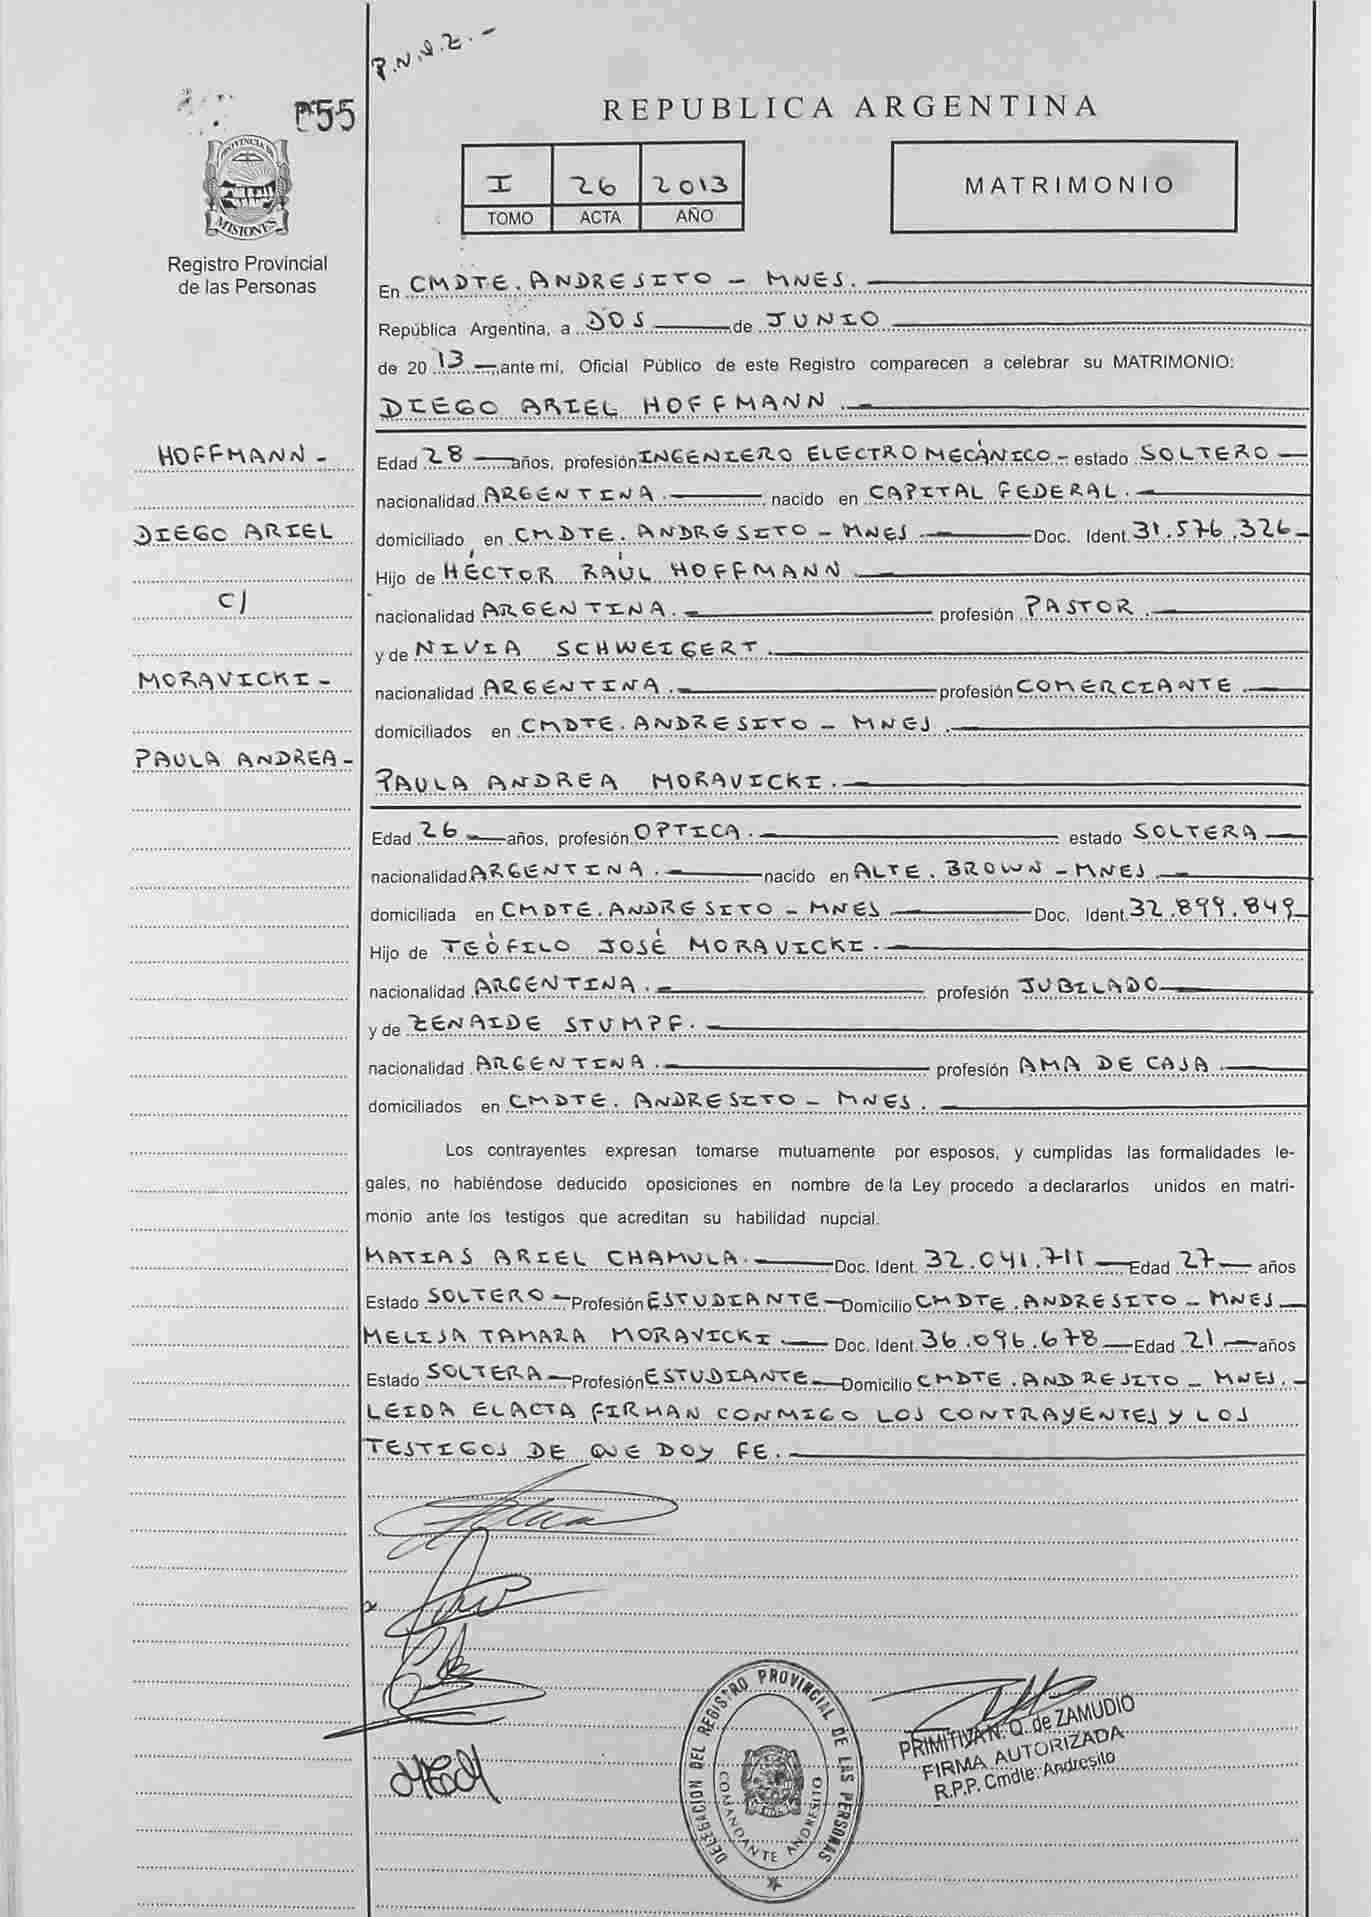 P.N.Q.Z.-
055
REPUBLICA ARGENTINA
PROVINCIA DE
MISIONES
I 26 2013
TOMO ACTA AÑO
MATRIMONIO
Registro Provincial
de las Personas
En CMDTE. ANDRESITO - MNES.
República Argentina, a DOS de JUNIO
de 20 13 ante mí, Oficial Público de este Registro comparecen a celebrar su MATRIMONIO:
DIEGO ARIEL HOFFMANN.
HOFFMANN -
DIEGO ARIEL
C/
MORAVICKI -
PAULA ANDREA -
Edad 28 años, profesión INGENIERO ELECTROMECÁNICO - estado SOLTERO
nacionalidad ARGENTINA. nacido en CAPITAL FEDERAL.
domiciliado en CMDTE. ANDRESITO - MNES Doc. Ident. 31.576.326-
Hijo de HÉCTOR RAÚL HOFFMANN
nacionalidad ARGENTINA. profesión PASTOR.
y de NIVIA SCHWEIGERT.
nacionalidad ARGENTINA. profesión COMERCIANTE.
domiciliados en CMDTE. ANDRESITO - MNES.
PAULA ANDREA MORAVICKI.
Edad 26 años, profesión OPTICA. estado SOLTERA
nacionalidad ARGENTINA. nacido en ALTE. BROWN - MNES.
domiciliada en CMDTE. ANDRESITO - MNES Doc. Ident. 32.899.849
Hijo de TEÓFILO JOSÉ MORAVICKI.
nacionalidad ARGENTINA. profesión JUBILADO
y de ZENAIDE STUMPF.
nacionalidad ARGENTINA. profesión AMA DE CASA
domiciliados en CMDTE. ANDRESITO - MNES.
Los contrayentes expresan tomarse mutuamente por esposos, y cumplidas las formalidades le-
gales, no habiéndose deducido oposiciones en nombre de la Ley procedo a declararlos unidos en matri-
monio ante los testigos que acreditan su habilidad nupcial.
MATIAS ARIEL CHAMULA. Doc. Ident. 32.041.711 Edad 27 años
Estado SOLTERO Profesión ESTUDIANTE Domicilio CMDTE. ANDRESITO - MNES
MELISA TAMARA MORAVICKI. Doc. Ident. 36.096.678 Edad 21 años
Estado SOLTERA Profesión ESTUDIANTE Domicilio CMDTE. ANDRESITO - MNES.
LEIDA EL ACTA FIRMAN CONMIGO LOS CONTRAYENTES Y LOS
TESTIGOS DE QUE DOY FE.
DELEGACION DEL REGISTRO PROVINCIAL DE LAS PERSONAS
COMANDANTE ANDRESITO
PRIMITIVA N. Q. de ZAMUDIO
FIRMA AUTORIZADA
R.P.P. Cmdte. Andresito